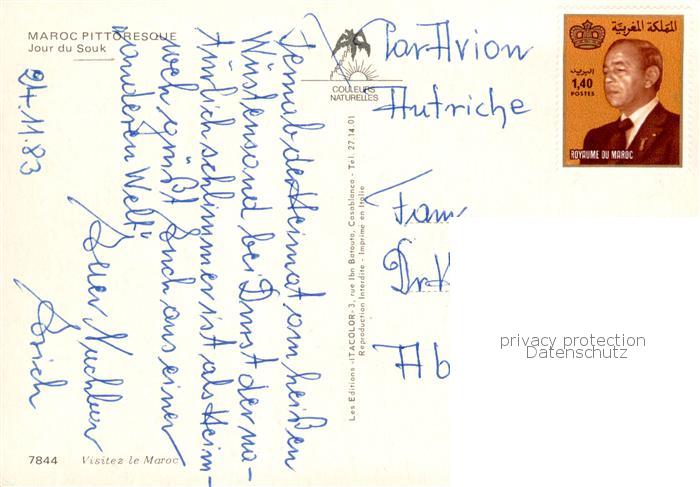 MAROC PITTORESQUE
Jour du Souk
24.11.83
Fernab der Heimat am heißen
Wüstensand bei Durst der na-
türlich schlimmer ist als Heim-
weh grüßt Euch aus einer
"anderen Welt"
Euer Nachbar
COULEURS
NATURELLES
Les Editions «ITACOLOR» 3, rue Ibn Batouta, Casablanca - Tel. 27.14.01
Reproduction Interdite - Imprimé en Italie
Par Avion
Autriche
Fam
Dr
Ab
المملكة المغربية
البريد
1,40
POSTES
ROYAUME DU MAROC
privacy protection
Datenschutz
7844 Visitez le Maroc